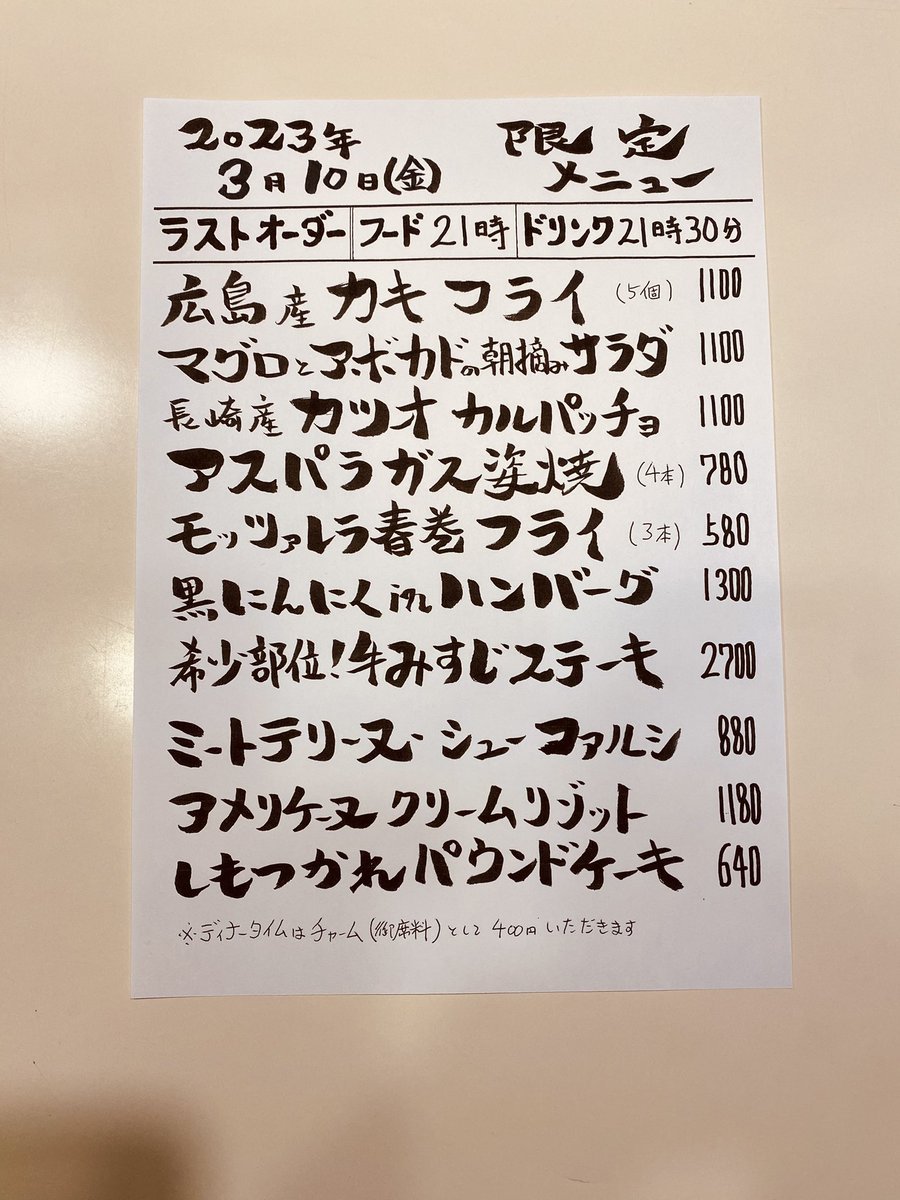 2023年 限定
3月10日(金) メニュー
ラストオーダー フード21時 ドリンク21時30分
広島産カキフライ (5個) 1100
マグロとアボカドの朝摘みサラダ 1100
長崎産カツオカルパッチョ 1100
アスパラガス姿焼 (4本) 780
モッツァレラ春巻フライ (3本) 580
黒にんにくinハンバーグ 1300
希少部位!牛みすじステーキ 2700
ミートテリーヌ シューファルシ 880
アメリケーヌクリームリゾット 1180
しもつかれパウンドケーキ 640
※ディナータイムはチャーム(御席料)として400円いただきます